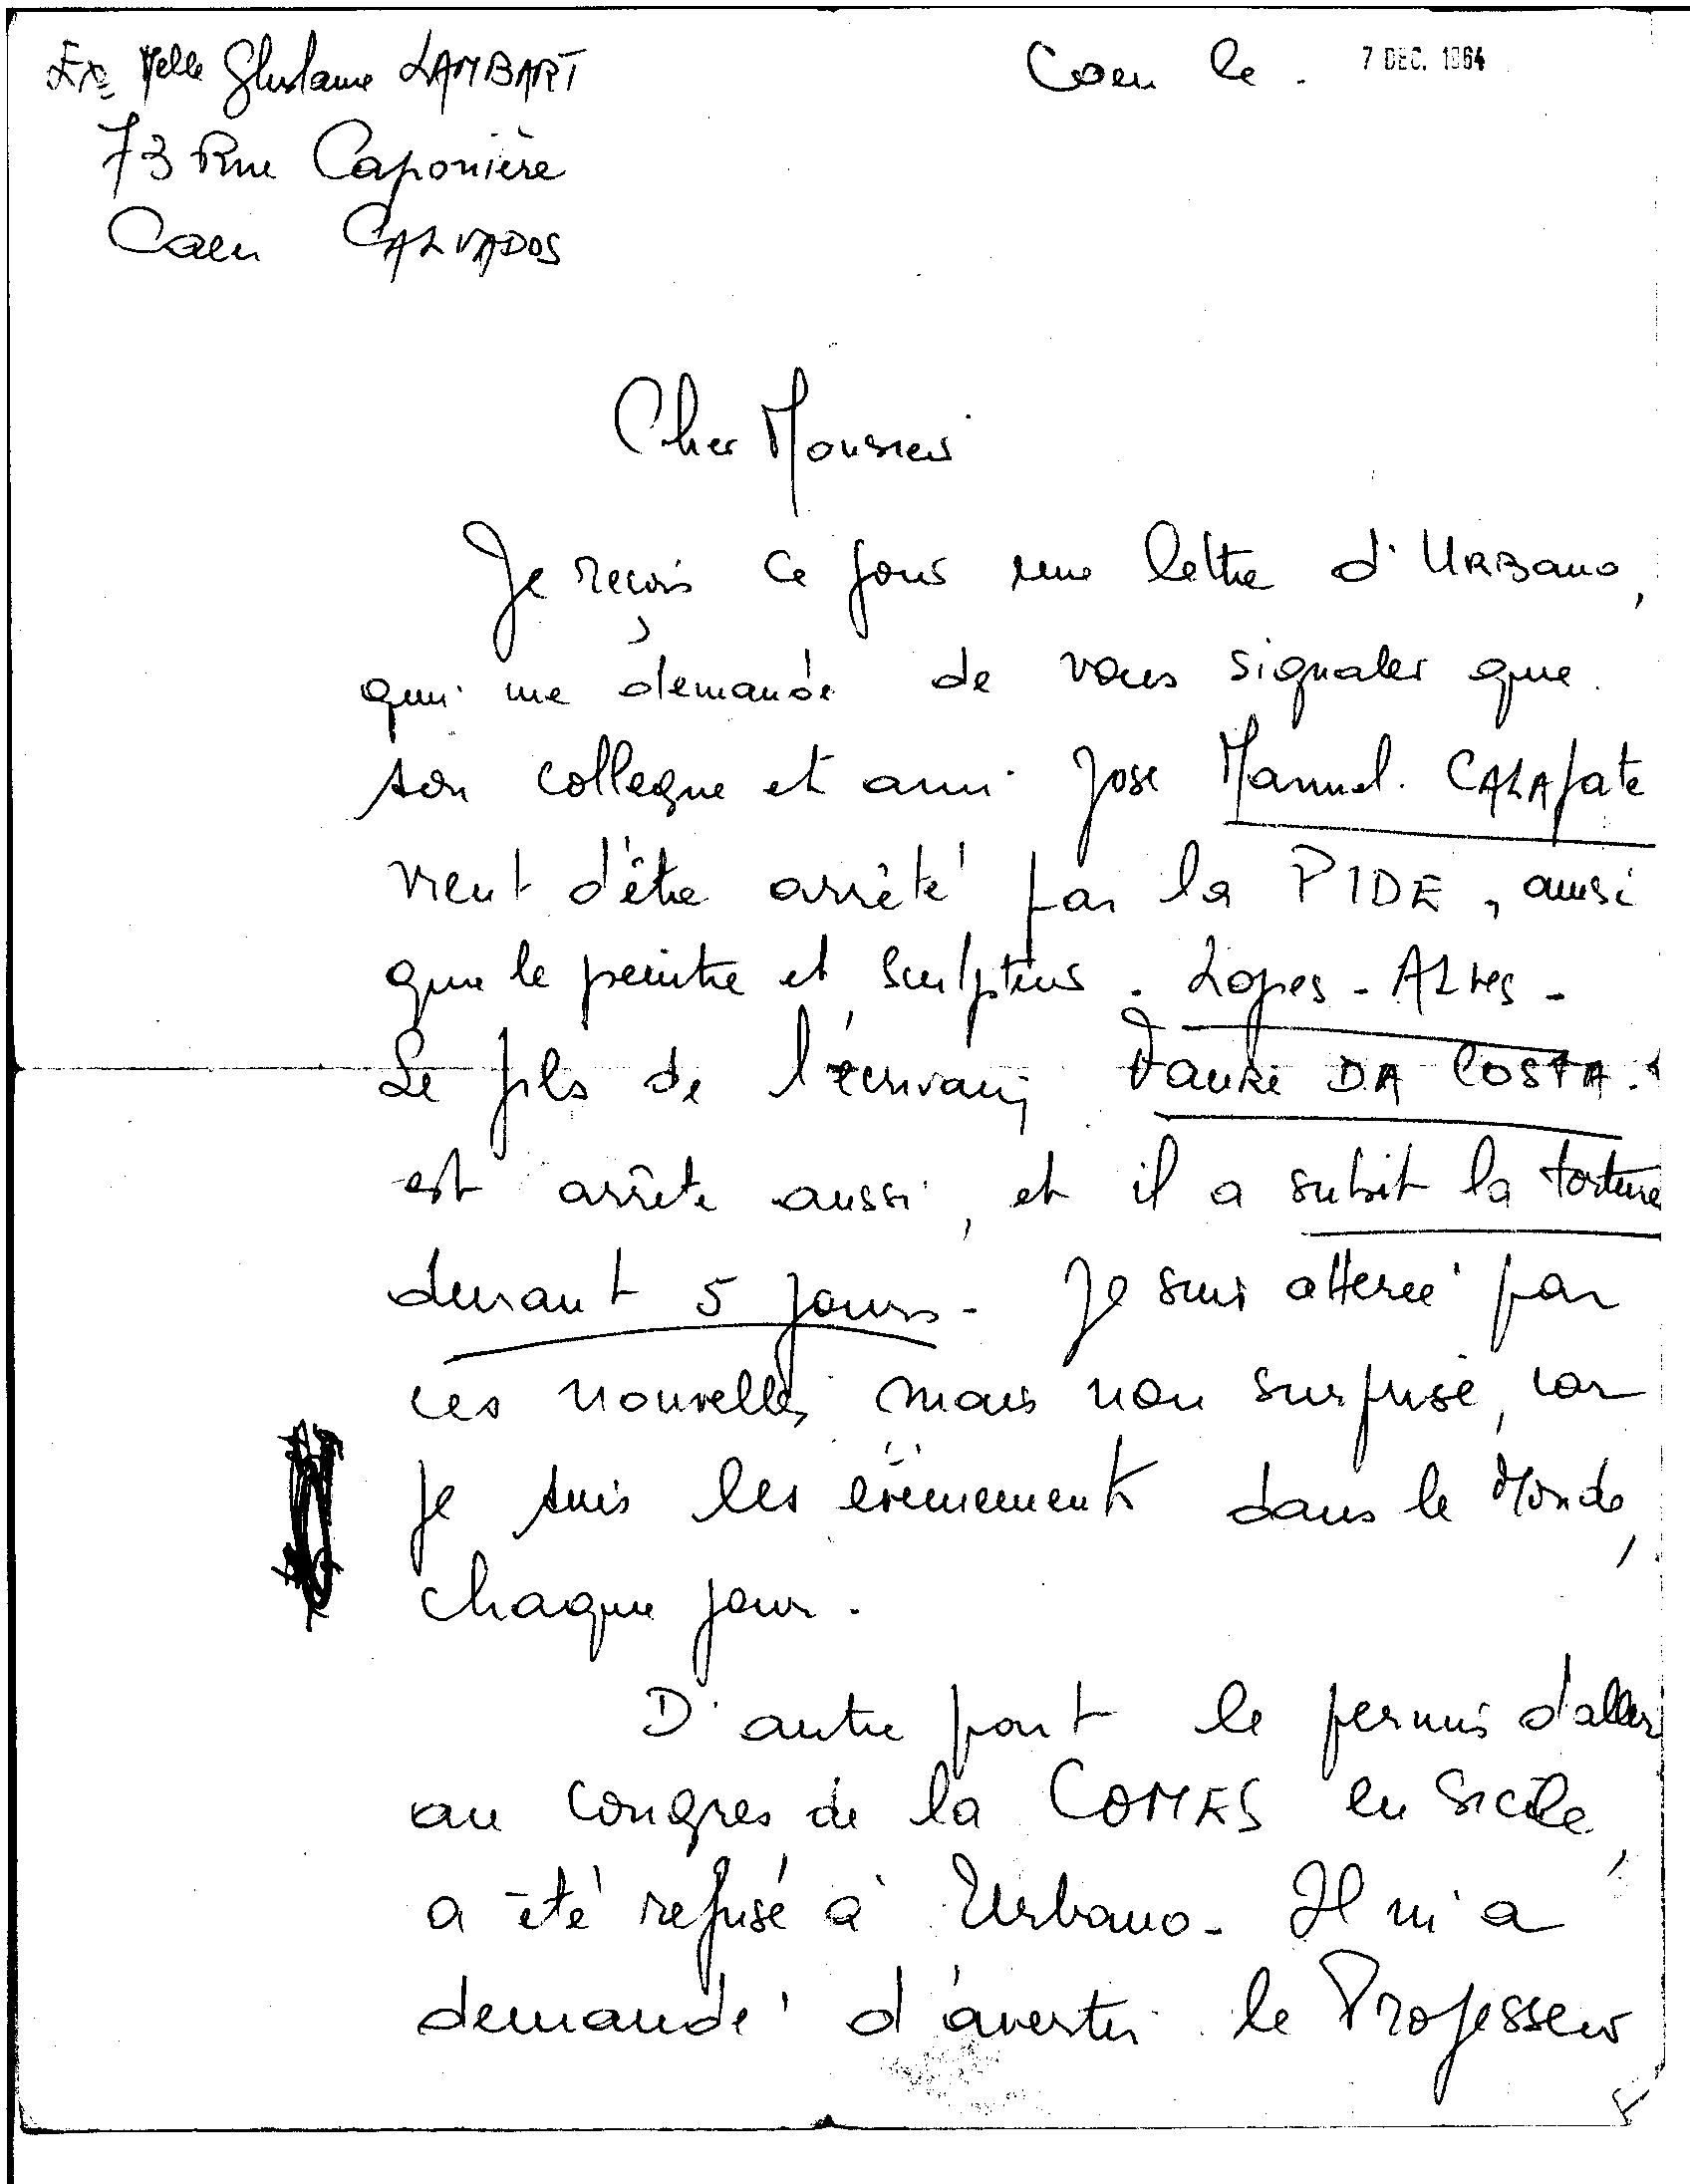 Ex Melle Ghislaine LAMBART
Caen le. 7 DEC. 1964
73 Rue Caponière
Caen CALVADOS
Cher Monsieur
Je reçois ce jour une lettre d'URBano,
qui me demande de vous signaler que
son collegue et ami Jose Manuel. CALAfate
vient d'être arrêté par la PIDE, ainsi
que le peintre et sculpteur. Lopes - ALves -
Le fils de l'écrivain DA COSTA.
est arrête aussi, et il a subit la torture
durant 5 jours - Je suis atterée par
ces nouvelles, mais non surprise, car
je suis les evènements dans le Monde,
chaque jour.
D'autre part le permis d'aller
au Congres de la COMES en Sicile,
a été refusé à Urbano - Il m'a
demandé d'avertir le Professeur